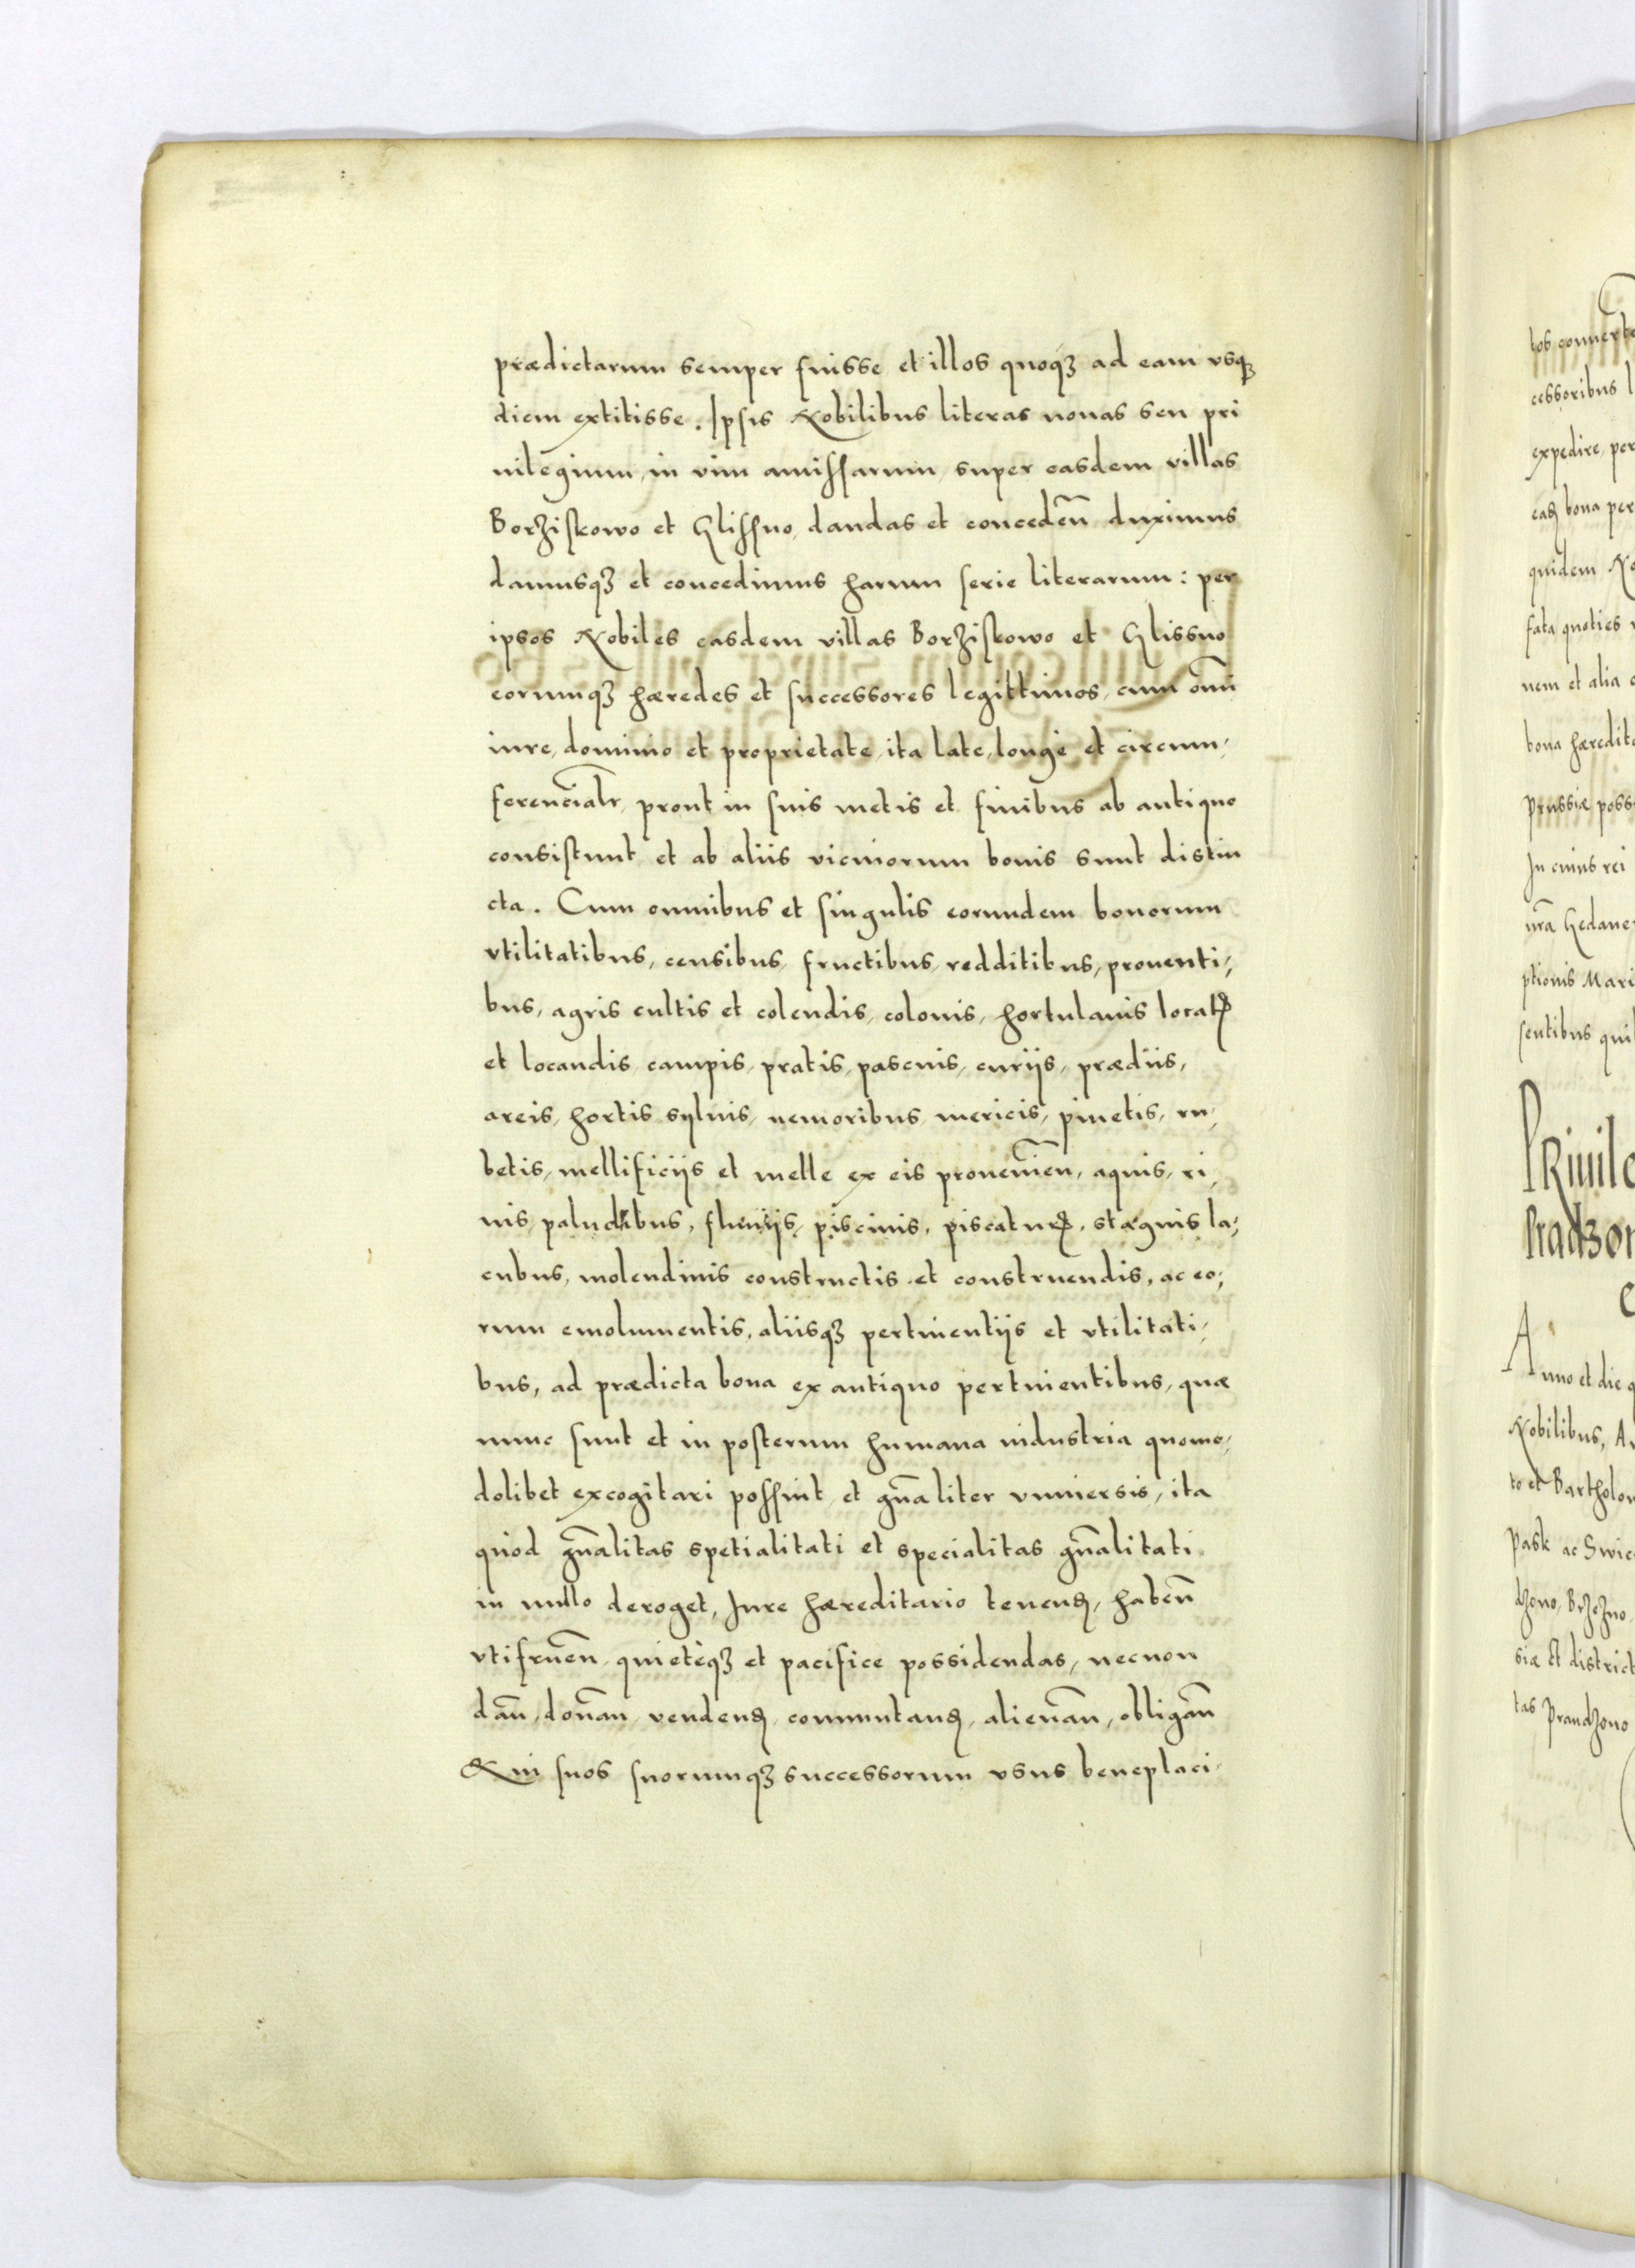 prædictarum semper fuisse et illos quoqꝫ ad eam vsqꝫ
diem extitisse. Ipsis Nobilibus literas nouas seu pri
uilegium, in vim amissarum, super easdem villas
Borziskowo et Glissno, dandas et conceden̄ duximus
damusqꝫ et concedimus harum serie literarum: per
ipsos Nobiles easdem villas Borziskowo et Glissno
eorumqꝫ hæredes et successores legittimos, cum om̄i
iure, dominio et proprietate, ita late, longè et circum,
ferencialr̄, prout in suis metis et finibus ab antiquo
consistunt, et ab aliis vicinorum bonis sunt distin
cta. Cum omnibus et singulis eorundem bonorum
vtilitatibus, censibus, fructibus, redditibus, prouenti,
bus, agris cultis et colendis, colonis, hortulanis locatꝭ
et locandis, campis, pratis, pascuis, curijs, prædiis,
areis, hortis, syluis, nemoribus, mericis, pinetis, ru,
betis, mellificijs et melle ex eis prouenien̄, aquis, ri,
uis, paludibus, fluuijs, piscinis, piscaturꝭ, stagnis la,
cubus, molendinis constructis et construendis, ac eo,
rum emolumentis, aliisqꝫ pertinentijs et vtilitati,
bus, ad prædicta bona ex antiquo pertinentibus, quæ
nunc sunt et in posterum humana industria quomo,
dolibet excogitari possint, et gn̄aliter vniuersis, ita
quòd gn̄alitas spetialitati et specialitas gn̄alitati
in nullo deroget, Iure hæreditario tenenꝫ, haben̄
vtifruen̄, quietèqꝫ et pacifice possidendas, necnon
dan̄, donan̄, vendenꝫ, commutanꝫ, alienan̄, obligan̄
& in suos suorumqꝫ successorum vsus beneplaci,
tos conuerte
cessoribus l
expedire, per
easꝫ bona per
quidem No
fata quoties
nem et alia
bona hæredita
Prussiæ poss
In cuius rei
ura Gedane
ptionis Mari
sentibus qui
PRiuile
Pradzon
Anno et die q
Nobilibus, A
to et Bartholom
Pask ac Swie
dzono, Brzezno
siæ et district
tas Prandzono